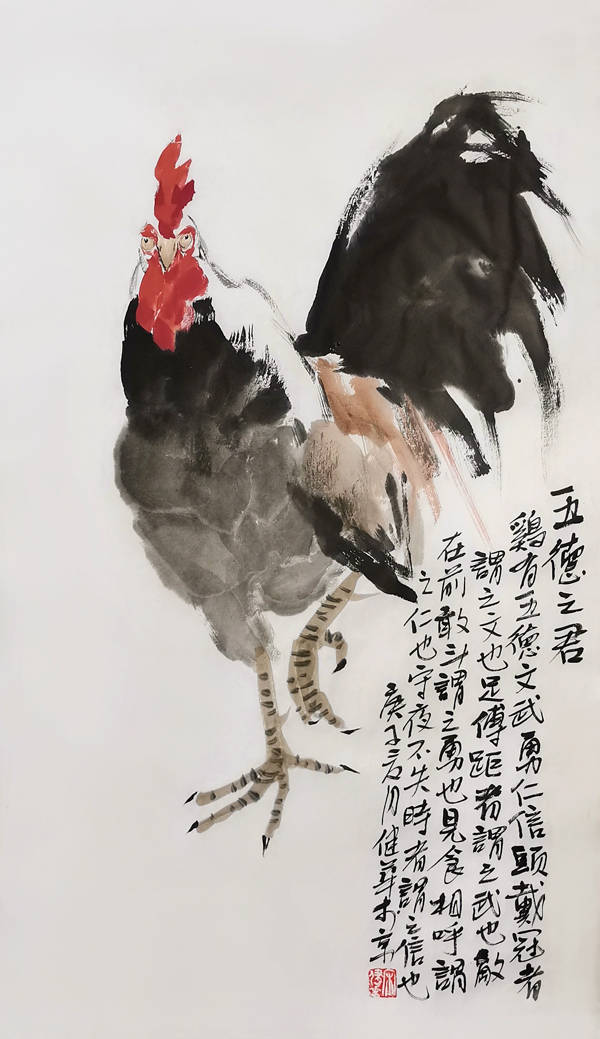 五德之君
鷄有五德文武勇仁信頭戴冠者
謂之文也足傅距者謂之武也敵
在前敢斗謂之勇也見食相呼謂
之仁也守夜不失時者謂之信也
庚子之月健華於京